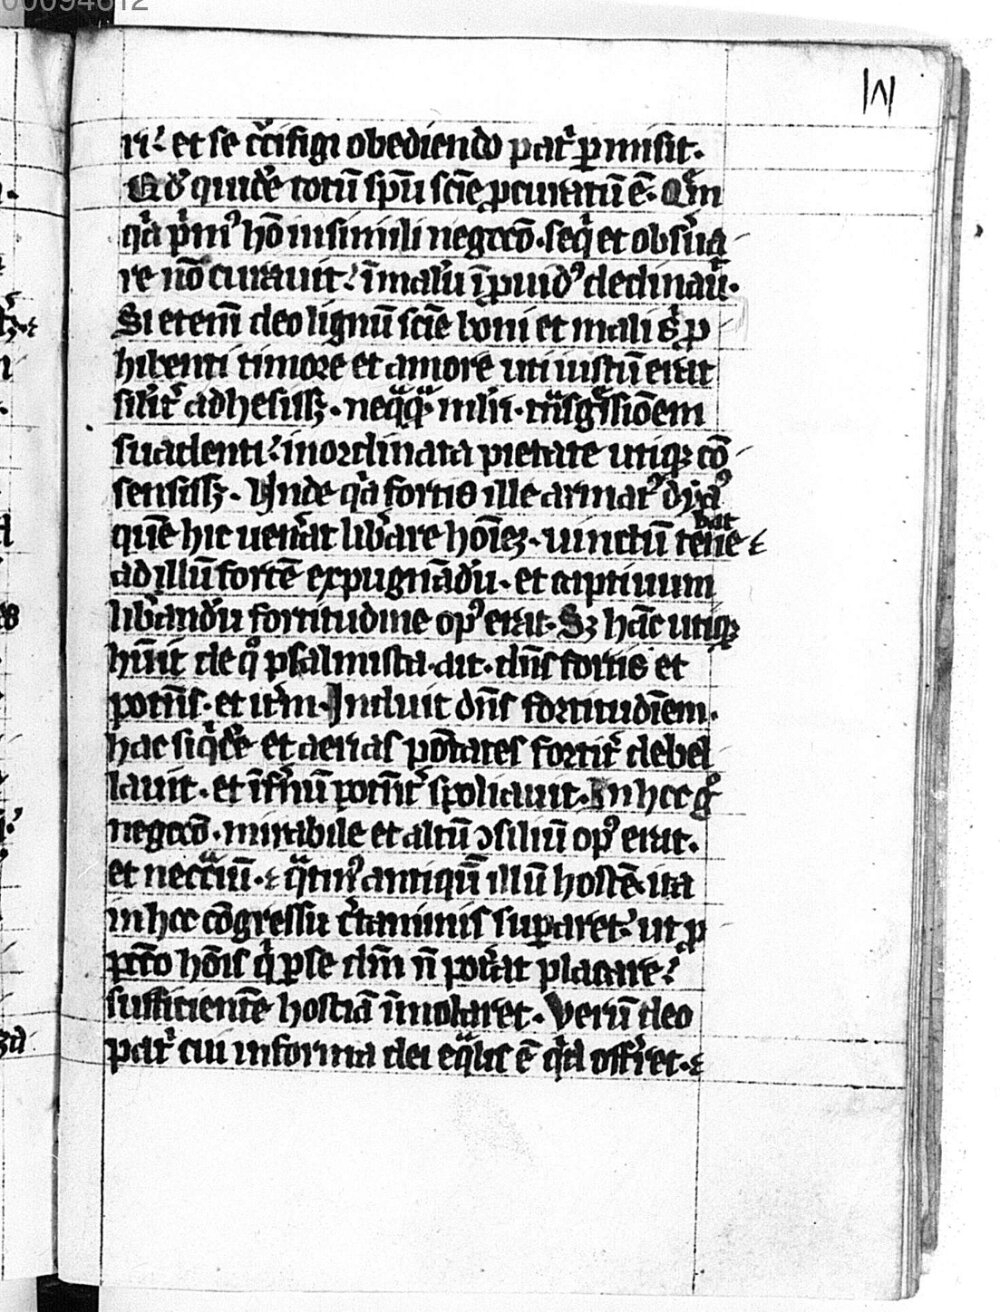 00094612
ri: et se c̄cifigi obediendo pat̓ p̲misit.
Qd̓ quidē totū sp̄u sc̄ie p̲curatū ē. Qm̄
q̓a p̓m᷒ hō in simili negoc̄o. seq̓ et obs̓ua
re nō curauit: ī malū īp̲uid᷒ declinau̓.
Si eteni̅ deo lignū sc̄ie boni et mali
hibenti timore et amore uti iustū erat
silit̓ adhesiss;. neq̄q̄ᵃ mlii. tn̄sgᵃssiōem
suadenti: inordinata pietate utiq; cō
sensiss;. Unde q̓a fortis ille armat᷒ dya᷒
quē hic uen̓at lib̓are hoīez. uinctū tene
bat
ad illū fortē expugnādū. et captiuum
lib̓andū fortitudine op᷒ erat. S; hāc utiq;
hūit de qº psalmista ait. dn̄s fortis et
potēns. et it̓m. Induit dn̄s fortitudīem.
hac siq̓dē et aerias p̄otates fortit̓ debel
lauit. et īf̓nū potēnt̓ spoliauit. In hoc gº
negoc̄o. mirabile et altū ɔsiliū op᷒ erat.
et necc̄iū. qᵃtin᷒ antiquū illū hostē ita
in hoc cōgressu c̓taminis sup̲aret: ut p̲
pc̄c̄o hōis q̓ p̲ se dm̄ n̄ pot̓at placare:
sufficientē hostiā īmolaret. Verū deo
pat̓ cui in forma dei eqᵃlis ē q̓d off̓ret.